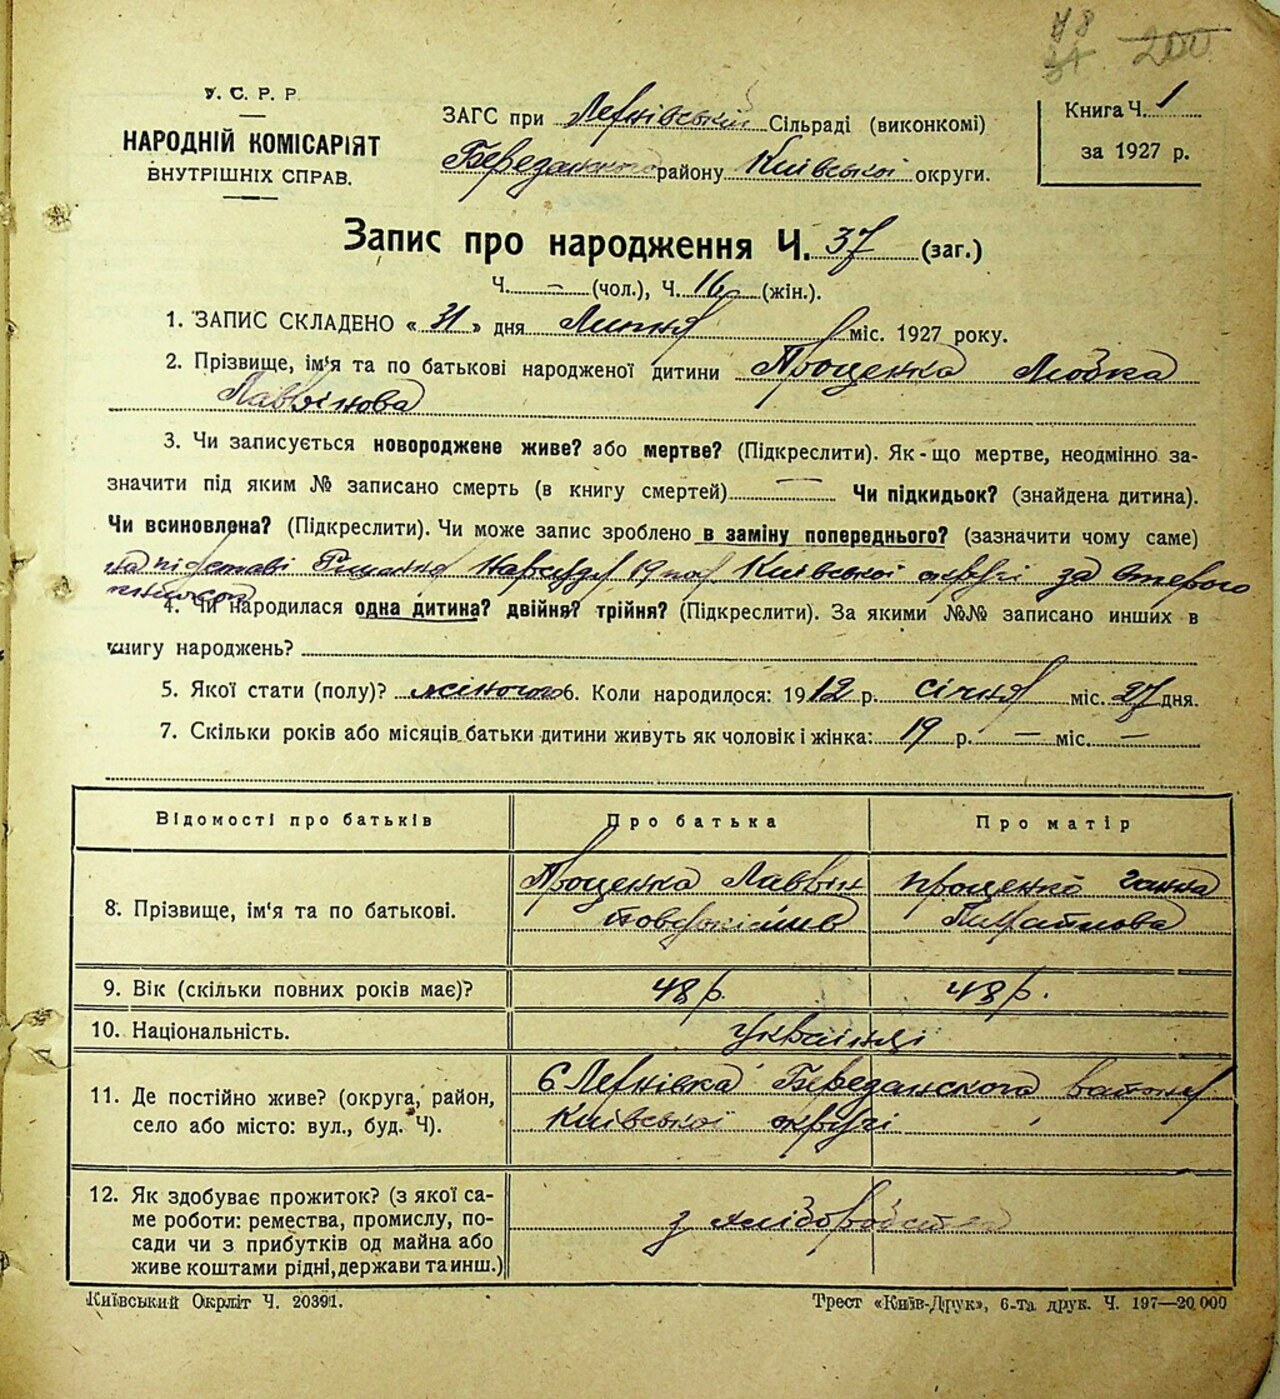 48
200
У. С. Р. Р.
НАРОДНІЙ КОМІСАРІЯТ
ВНУТРІШНІХ СПРАВ.
ЗАГС при Лехнівській Сільраді (виконкомі)
Березанского району Київської округи.
Книга Ч. 1
за 1927 р.
Запис про народження Ч. 37 (заг.)
Ч. — (чол.), Ч. 16 (жін.).
1. ЗАПИС СКЛАДЕНО « 31 » дня Липня міс. 1927 року.
2. Прізвище, ім'я та по батькові народженої дитини Проценка Любка
Лаввінова
3. Чи записується новороджене живе? або мертве? (Підкреслити). Як-що мертве, неодмінно за-
значити під яким № записано смерть (в книгу смертей) — Чи підкидьок? (знайдена дитина).
Чи всиновлена? (Підкреслити). Чи може запис зроблено в заміну попереднього? (зазначити чому саме)
на підставі Нарсуду 19 Київської округі за
4. Чи народилася одна дитина? двійня? трійня? (Підкреслити). За якими №№ записано инших в
книгу народжень?
5. Якої стати (полу)? жіночого 6. Коли народилося: 1912 р. січня міс. 27 дня.
7. Скільки років або місяців батьки дитини живуть як чоловік і жінка: 19 р. — міс. —
Відомості про батьків
Про батька
Про матір
8. Прізвище, ім'я та по батькові.
Проценка Лаввін
проценко Ганна
9. Вік (скільки повних років має)?
48 р.
48 р.
10. Національність.
Українці
11. Де постійно живе? (округа, район,
село або місто: вул., буд. Ч).
С Лехнівка Березанского району
Київської округі
12. Як здобуває прожиток? (з якої са-
ме роботи: ремества, промислу, по-
сади чи з прибутків од майна або
живе коштами рідні, держави та инш.)
з хліборобства
Київський Окрліт Ч. 20391.
Трест «Київ-Друк», 6-та друк. Ч. 197—20.000